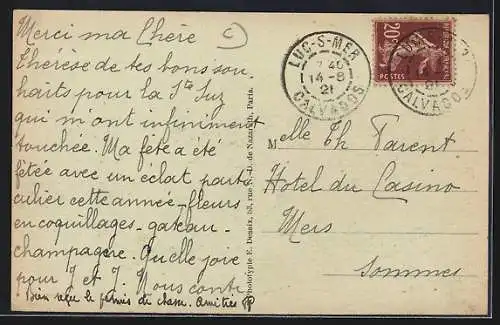 Merci ma Chère
Thérèse de tes bons sou
haits pour la Ste Suz
qui m'ont infiniment
touchée. Ma fête a été
fêtée avec un éclat parti
culier cette année - fleurs
en coquillages - gateau -
champagne. Quelle joie
pour J et J. Nous conti
Bien reçu le permis de chasse. Amitiés
Phototypie E. Desaix, 53, rue N.-D. de Nazareth, Paris.
LUC-S-MER
7 40
14-8
21
CALVADOS
20c
POSTES
CALVADOS
M elle Th Parent
Hotel du Casino
Mers
Sommes